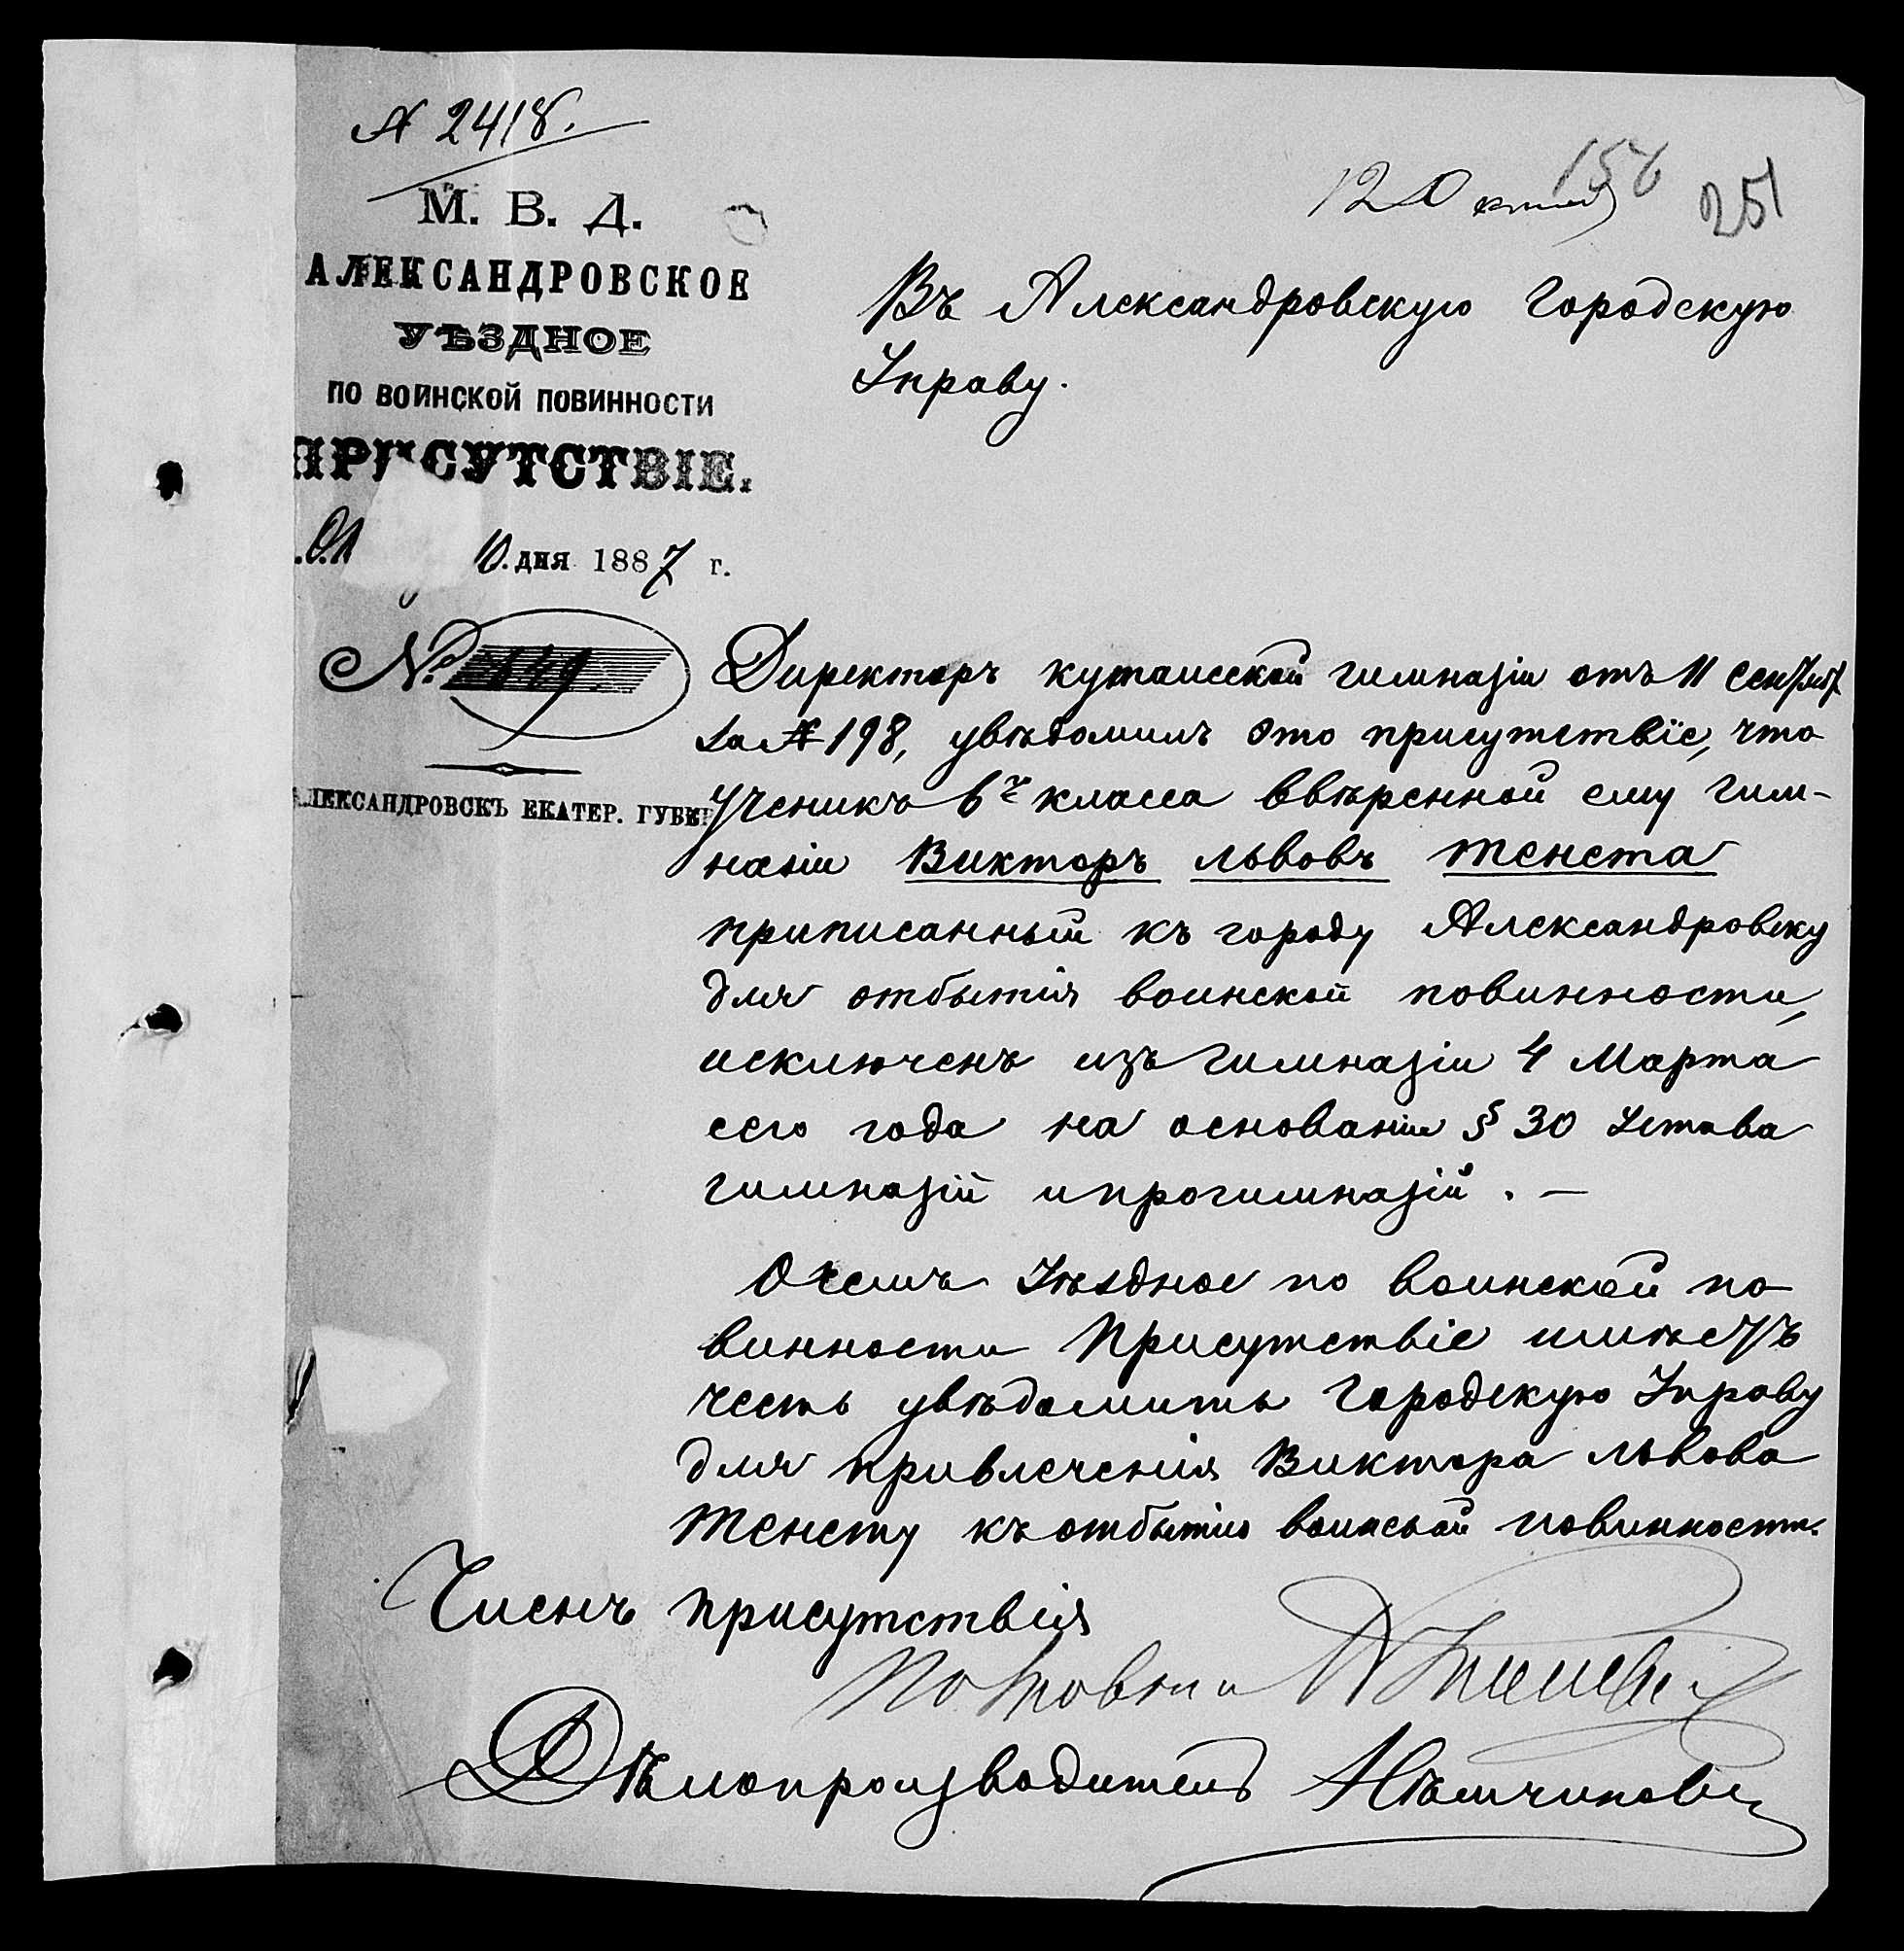 № 2418.
12 Октяб
156
251
М. В. Д.
АЛЕКСАНДРОВСКОЕ
УѢЗДНОЕ
ПО ВОИНСКОЙ ПОВИННОСТИ
ПРИСУТСТВІЕ.
10. дня 1887 г.
№ 149
АЛЕКСАНДРОВСКЪ ЕКАТЕР. ГУБЕР
Въ Александровскую Городскую
Управу.
Директоръ кутаисской гимназіи отъ 11 Сентября
за № 198, увѣдомилъ это присутствіе, что
Ученикъ 6го класса ввѣренной ему гим-
назіи Викторъ Львовъ Тенета
приписанный къ городу Александровску
для отбытія воинской повинности,
исключенъ изъ гимназіи 4 Марта
сего года на основаніи § 30 Устава
гимназій и прогимназій. —
О чемъ Уѣздное по воинской по
винности Присутствіе имѣетъ
честь увѣдомить Городскую Управу
для привлеченія Виктора Львова
Тенету къ отбытію воинской повинности.
Членъ присутствія
Дѣлопроизводитель